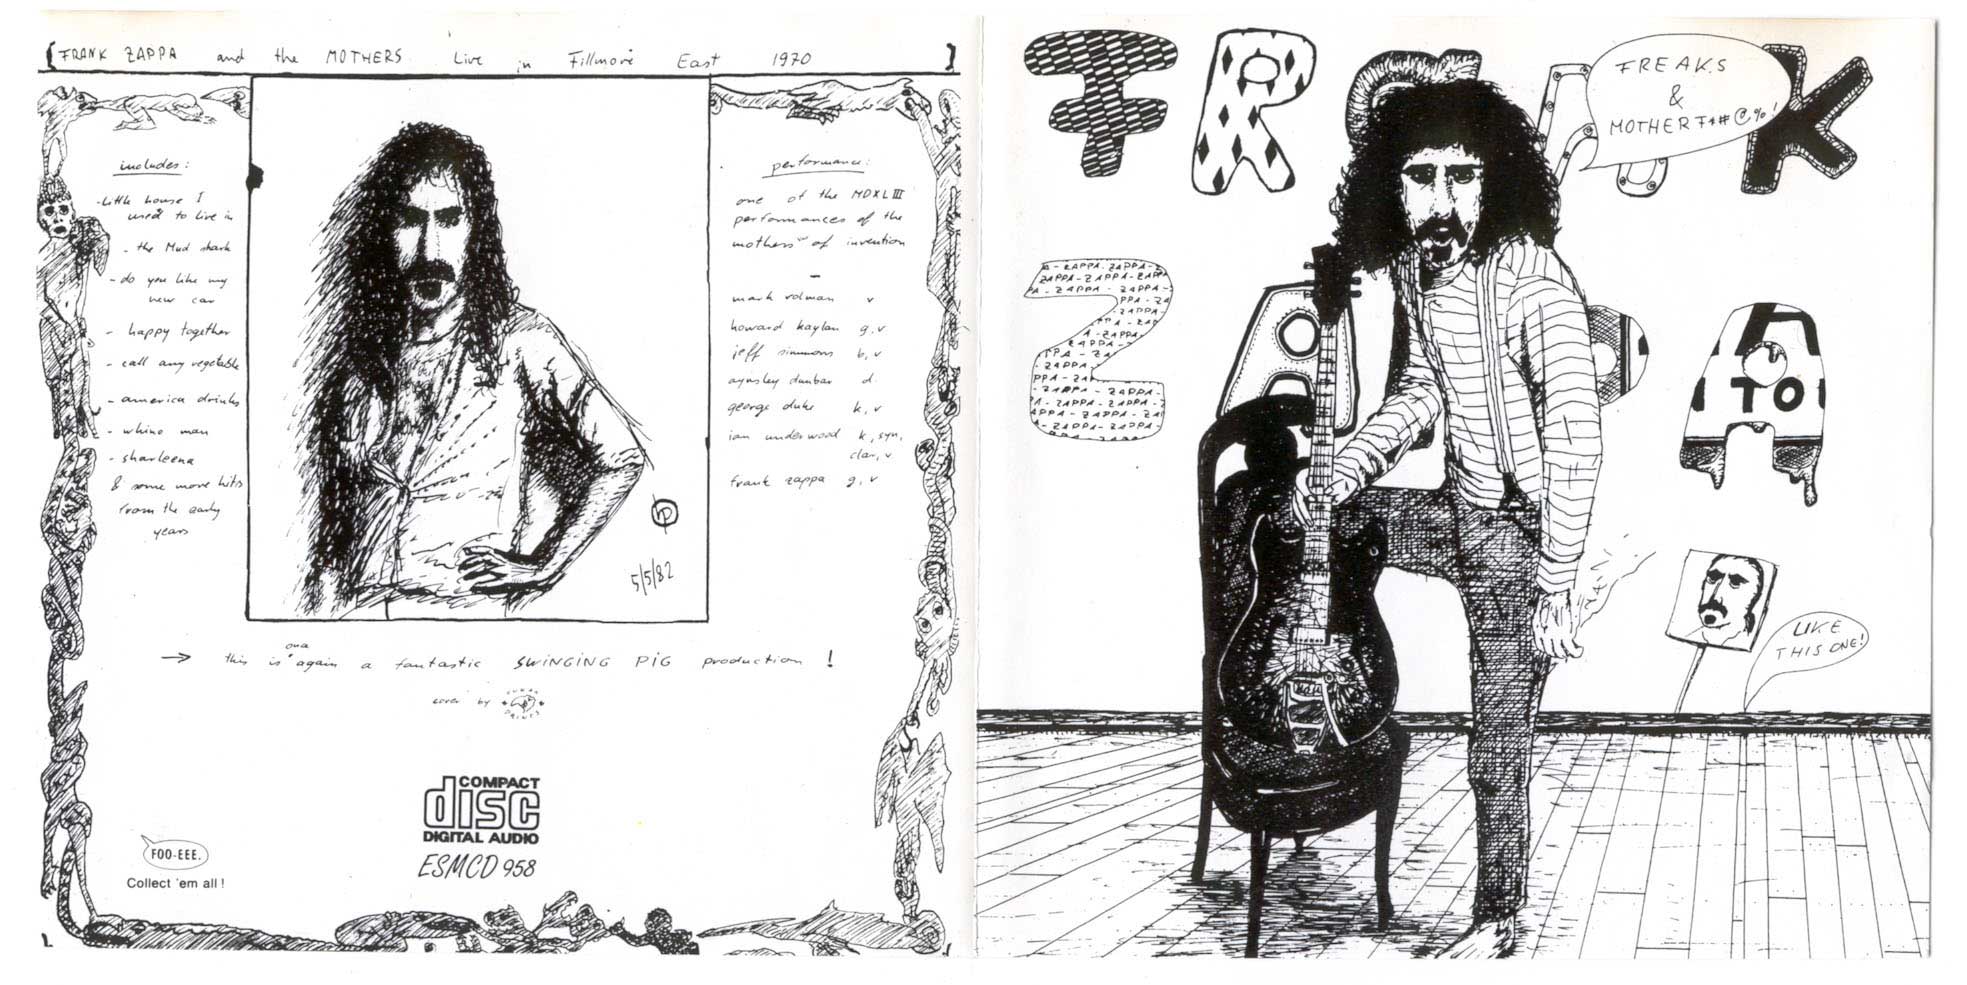 FRANK ZAPPA and the MOTHERS Live in Fillmore East 1970
includes:
-little house I
used to live in
- the Mud shark
- do you like my
new car
- happy together
- call any vegetable
- america drinks
- whino man
- sharleena
& some more hits
from the early
years
performance:
one of the MDXLIII
performances of the
mothers of invention
—
mark volman v
howard kaylan g, v
jeff simmons b, v
aynsley dunbar d.
george duke k, v
ian underwood k, syn,
clar, v
frank zappa g, v
5/5/82
→ this is ona again a fantastic SWINGING PIG production !
cover by
COMPACT
disc
DIGITAL AUDIO
ESMCD 958
FOO-EEE.
Collect 'em all !
FRANK
FREAKS
&
MOTHERF*#@%!
ZAPPA
A - ZAPPA - ZAPPA -
ZAPPA - ZAPPA - ZAPPA
TO
LIKE
THIS ONE!